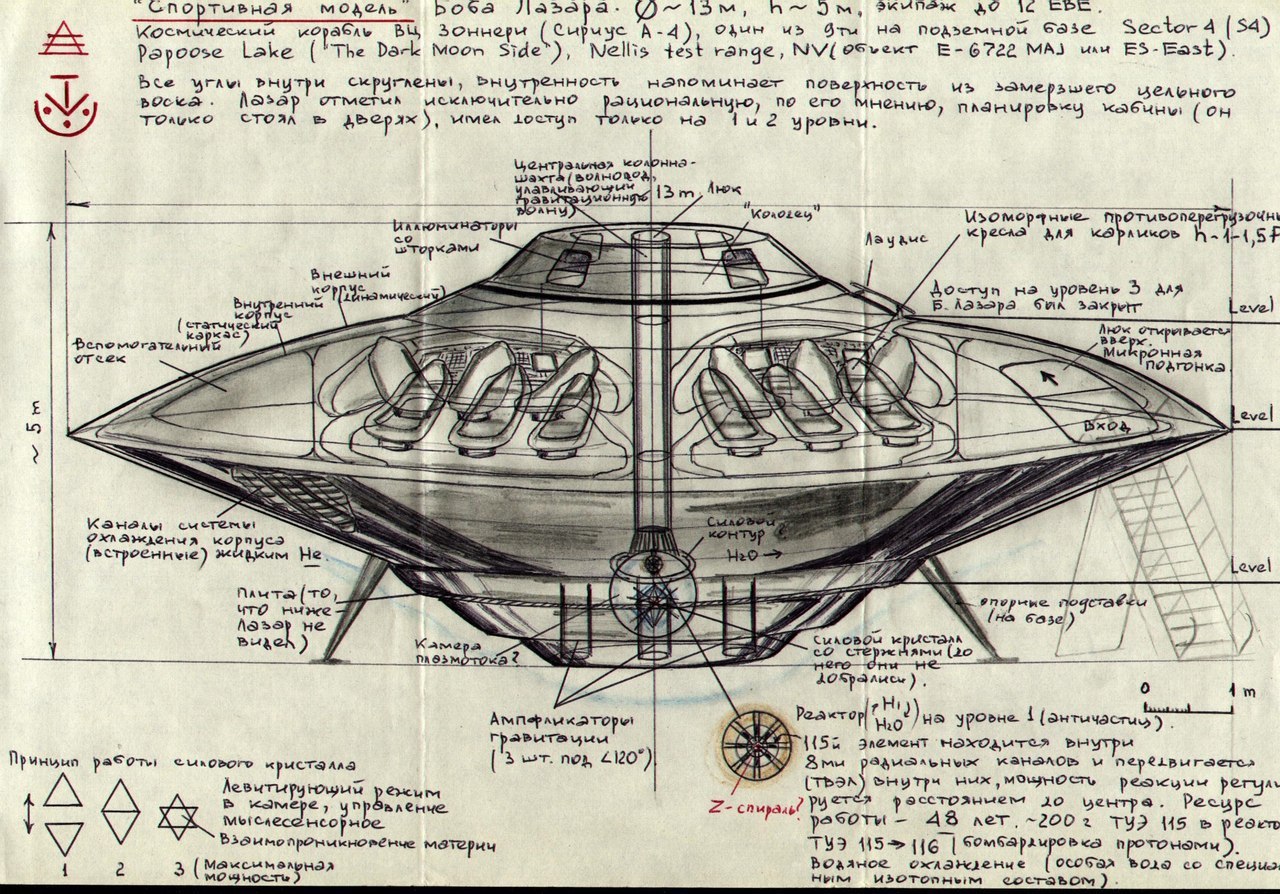 "Спортивная модель" Боба Лазара. Ø ~ 13 м, h ~ 5 м, экипаж до 12 EBE.
Космический корабль ВЦ Зоннери (Сириус А-4), один из 9ти на подземной базе Sector 4 (S4)
Papoose Lake ("The Dark Moon Side"), Nellis test range, NV (объект E-6722 MAJ или ES-East).
Все углы внутри скруглены, внутренность напоминает поверхность из замерзшего цельного
воска. Лазар отметил исключительно рациональную, по его мнению, планировку кабины (он
только стоял в дверях), имел доступ только на 1 и 2 уровни.
Центральная колонна-
шахта (волновод,
улавливающий
гравитационную
волну)
13 m
Люк
"Колодец"
Иллюминаторы
со
шторками
Лаудис
Изоморфные противоперегрузочн
кресла для карликов h~1-1,5
Внешний
корпус
(динамический)
Внутренний
корпус
(статический
каркас)
Вспомогательный
отсек
Доступ на уровень 3 для
Б. Лазара был закрыт
Level
Люк открывается
вверх.
Микронная
подгонка
Level
Вход
~ 5 m
Каналы системы
охлаждения корпуса
(встроенные) жидким He.
Силовой
контур ?
H2O →
Level
Плита (то,
что ниже
Лазар не
видел)
опорные подставки
(на базе)
Камера
плазмотока?
Силовой кристалл
со стержнями (до
него они не
добрались).
0 1 m
Ампфликаторы
гравитации
(3 шт. под ∠120°)
Реактор (H2O) на уровне 1 (античастиц).
115й элемент находится внутри
8ми радиальных каналов и передвигается
(твэл) внутри них, мощность реакции регули
руется расстоянием до центра. Ресурс
работы - 48 лет. ~200 г ТУЭ 115 в реакто
ТУЭ 115 → 116 (бомбардировка протонами).
Водяное охлаждение (особая вода со специа
ным изотопным составом).
Z-спираль?
Принцип работы силового кристалла
Левитирующий режим
в камере, управление
мыслесенсорное
Взаимопроникновение материи
1 2 3 (максимальная
мощность)